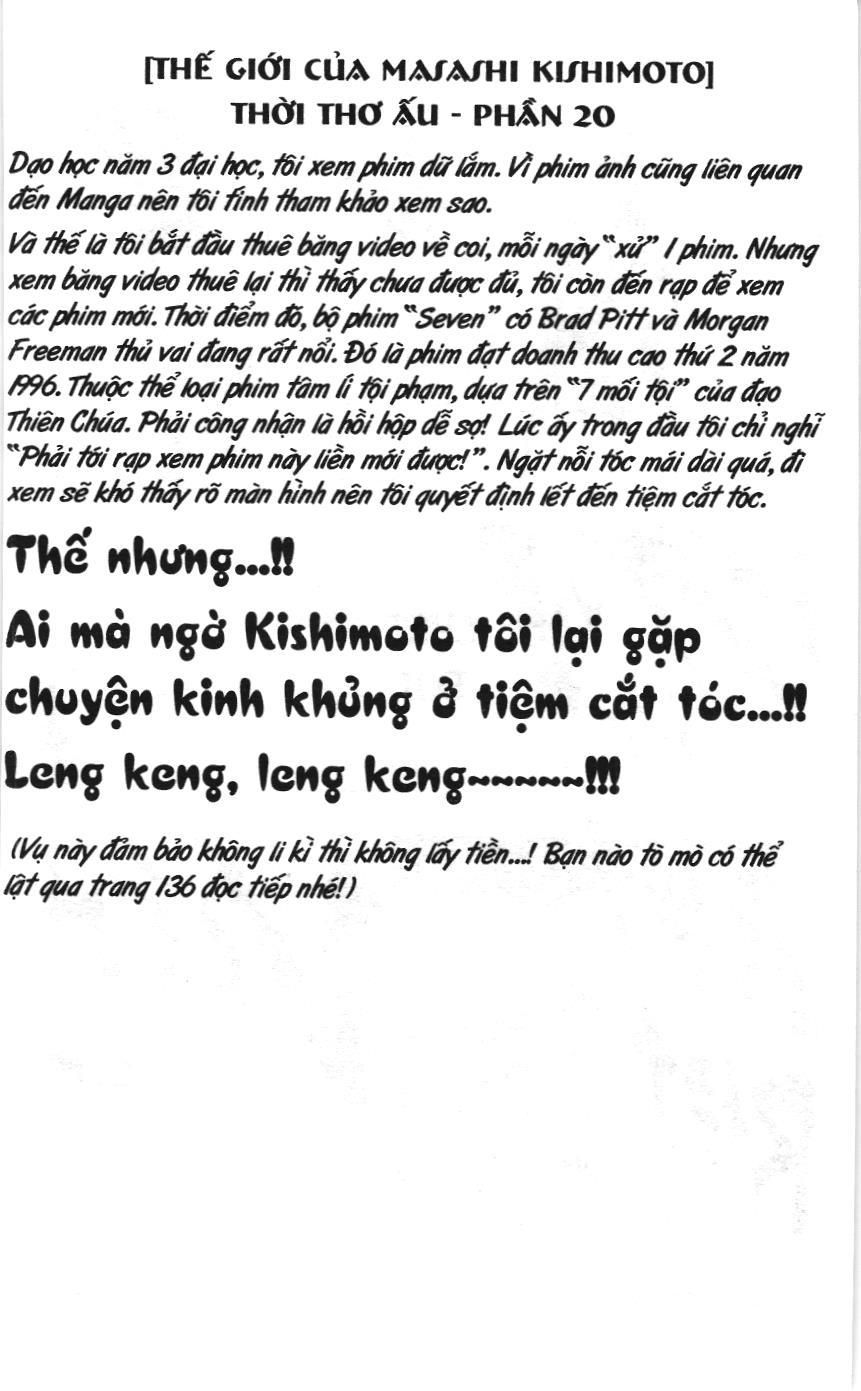 [THẾ GIỚI CỦA MASASHI KISHIMOTO]
THỜI THƠ ẤU - PHẦN 20
Dạo học năm 3 đại học, tôi xem phim dữ lắm. Vì phim ảnh cũng liên quan
đến Manga nên tôi tính tham khảo xem sao.
Và thế là tôi bắt đầu thuê băng video về coi, mỗi ngày “xử” 1 phim. Nhưng
xem băng video thuê lại thì thấy chưa được đủ, tôi còn đến rạp để xem
các phim mới. Thời điểm đó, bộ phim “Seven” có Brad Pitt và Morgan
Freeman thủ vai đang rất nổi. Đó là phim đạt doanh thu cao thứ 2 năm
1996. Thuộc thể loại phim tâm lí tội phạm, dựa trên “7 mối tội” của đạo
Thiên Chúa. Phải công nhận là hồi hộp dễ sợ! Lúc ấy trong đầu tôi chỉ nghĩ
“Phải tới rạp xem phim này liền mới được!”. Ngặt nỗi tóc mái dài quá, đi
xem sẽ khó thấy rõ màn hình nên tôi quyết định lết đến tiệm cắt tóc.
Thế nhưng...!!
Ai mà ngờ Kishimoto tôi lại gặp
chuyện kinh khủng ở tiệm cắt tóc...!!
Leng keng, leng keng~~~~~!!!
(Vụ này đảm bảo không li kì thì không lấy tiền...! Bạn nào tò mò có thể
lật qua trang 136 đọc tiếp nhé!)